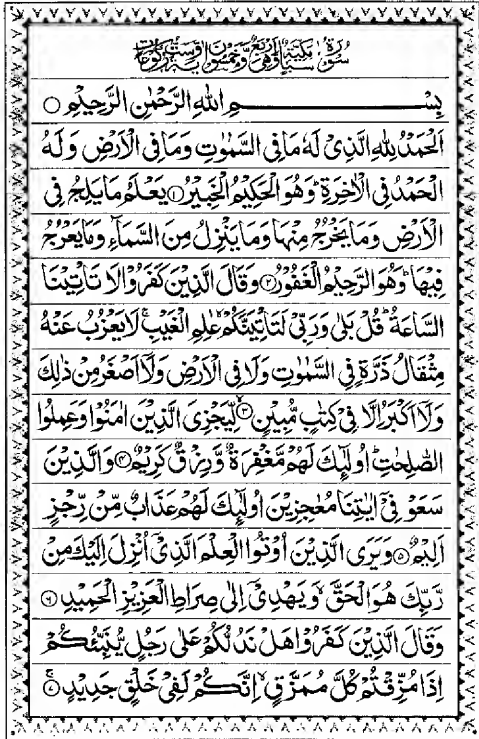 سُوْرَةُ سَبَاٍ مَكِّيَّةٌ وَّهِىَ اَرْبَعٌ وَّخَمْسُوْنَ اٰيَةً وَّسِتُّ رُكُوْعَاتٍ
بِسْمِ اللهِ الرَّحْمٰنِ الرَّحِيْمِ ○
اَلْحَمْدُ لِلهِ الَّذِىْ لَهٗ مَا فِى السَّمٰوٰتِ وَمَا فِى الْاَرْضِ وَلَهُ
الْحَمْدُ فِى الْاٰخِرَةِ ؕ وَهُوَ الْحَكِيْمُ الْخَبِيْرُ ۝۱ يَعْلَمُ مَا يَلِجُ فِى
الْاَرْضِ وَمَا يَخْرُجُ مِنْهَا وَمَا يَنْزِلُ مِنَ السَّمَآءِ وَمَا يَعْرُجُ
فِيْهَا ؕ وَهُوَ الرَّحِيْمُ الْغَفُوْرُ ۝۲ وَقَالَ الَّذِيْنَ كَفَرُوْا لَا تَاْتِيْنَا
السَّاعَةُ ؕ قُلْ بَلٰى وَرَبِّىْ لَتَاْتِيَنَّكُمْ ۙ عٰلِمِ الْغَيْبِ ۚ لَا يَعْزُبُ عَنْهُ
مِثْقَالُ ذَرَّةٍ فِى السَّمٰوٰتِ وَلَا فِى الْاَرْضِ وَلَاۤ اَصْغَرُ مِنْ ذٰلِكَ
وَلَاۤ اَكْبَرُ اِلَّا فِىْ كِتٰبٍ مُّبِيْنٍ ۝۳ لِّيَجْزِىَ الَّذِيْنَ اٰمَنُوْا وَعَمِلُوا
الصّٰلِحٰتِ ؕ اُولٰٓئِكَ لَهُمْ مَّغْفِرَةٌ وَّرِزْقٌ كَرِيْمٌ ۝۴ وَالَّذِيْنَ
سَعَوْ فِىْۤ اٰيٰتِنَا مُعٰجِزِيْنَ اُولٰٓئِكَ لَهُمْ عَذَابٌ مِّنْ رِّجْزٍ
اَلِيْمٌ ۝۵ وَيَرَى الَّذِيْنَ اُوْتُوا الْعِلْمَ الَّذِىْۤ اُنْزِلَ اِلَيْكَ مِنْ
رَّبِّكَ هُوَ الْحَقَّ ۙ وَيَهْدِىْۤ اِلٰى صِرَاطِ الْعَزِيْزِ الْحَمِيْدِ ۝۶
وَقَالَ الَّذِيْنَ كَفَرُوْا هَلْ نَدُلُّكُمْ عَلٰى رَجُلٍ يُّنَبِّئُكُمْ
اِذَا مُزِّقْتُمْ كُلَّ مُمَزَّقٍ ۙ اِنَّكُمْ لَفِىْ خَلْقٍ جَدِيْدٍ ۝۷ۚ